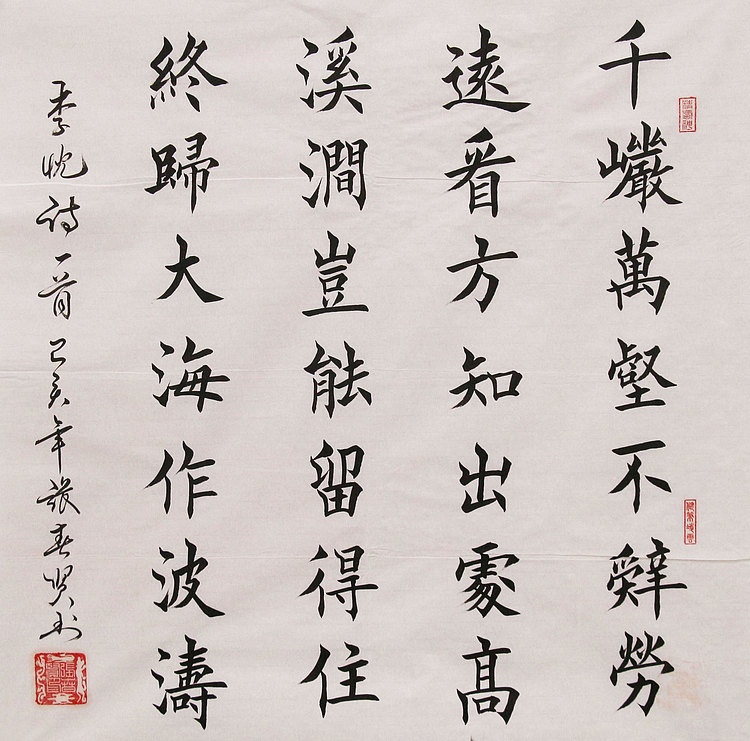 千巖萬壑不辤勞
遠看方知出處高
溪澗豈能留得住
終歸大海作波濤
李忱詩一首己亥年張春賢书